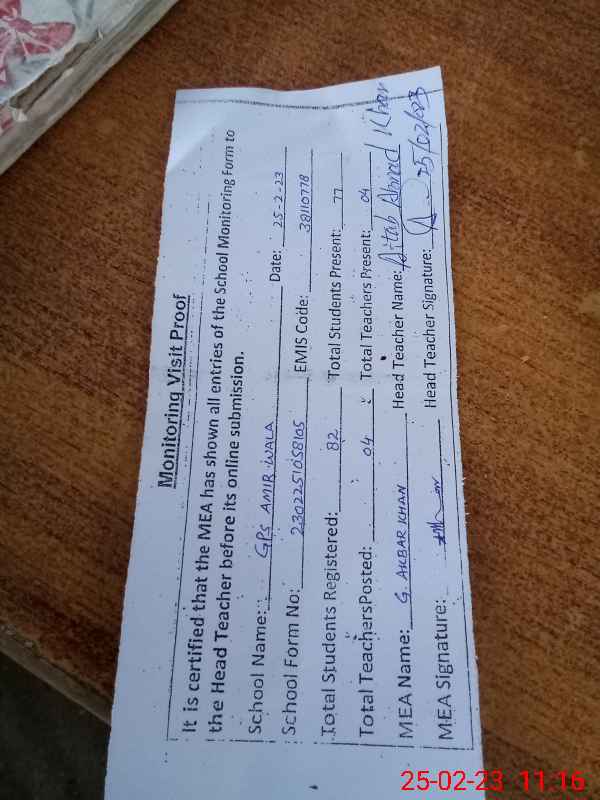 Monitoring Visit Proof
It is certified that the MEA has shown all entries of the School Monitoring Form to
the Head Teacher before its online submission.
School Name: GPS AMIR WALA Date: 25-2-23
School Form No: 2302251058105 EMIS Code: 38110778
Total Students Registered: 82 Total Students Present: 77
Total TeachersPosted: 04 Total Teachers Present: 04
MEA Name: G. AKBAR KHAN Head Teacher Name: Aftab Ahmad Khan
MEA Signature: Head Teacher Signature: 25/02/023
25-02-23 11:16